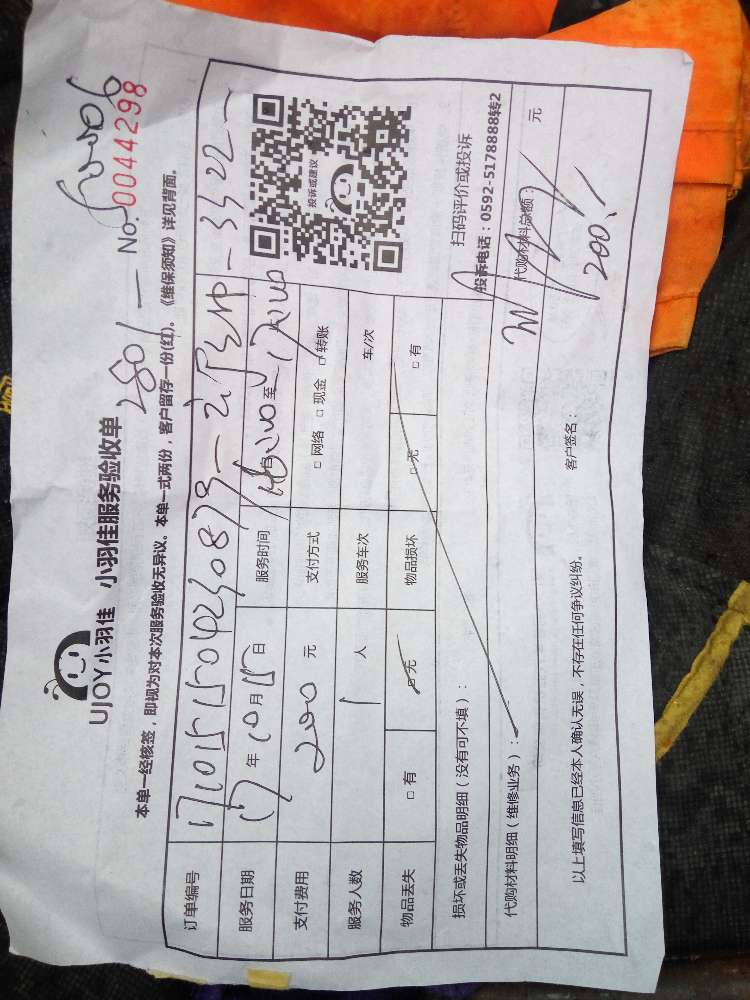 UJOY小羽佳 小羽佳服务验收单
2801
No. 0044298
本单一经核签，即视为对本次服务验收无异议。本单一式两份，客户留存一份(红)。《维保须知》详见背面。
订单编号
服务日期 17 年 10 月 15 日 服务时间 自 至
支付费用 200 元 支付方式 □ 网络 □ 现金 □ 转账
服务人数 1 人 服务车次 车/次
物品丢失 □ 有 □ 无 物品损坏 □ 无 □ 有
投诉或建议
扫码评价或投诉
投诉电话：0592-5178888转2
损坏或丢失物品明细（没有可不填）：
代购材料明细（维修业务）： 代购材料总额： 元
200
以上填写信息已经本人确认无误，不存在任何争议纠纷。 客户签名：